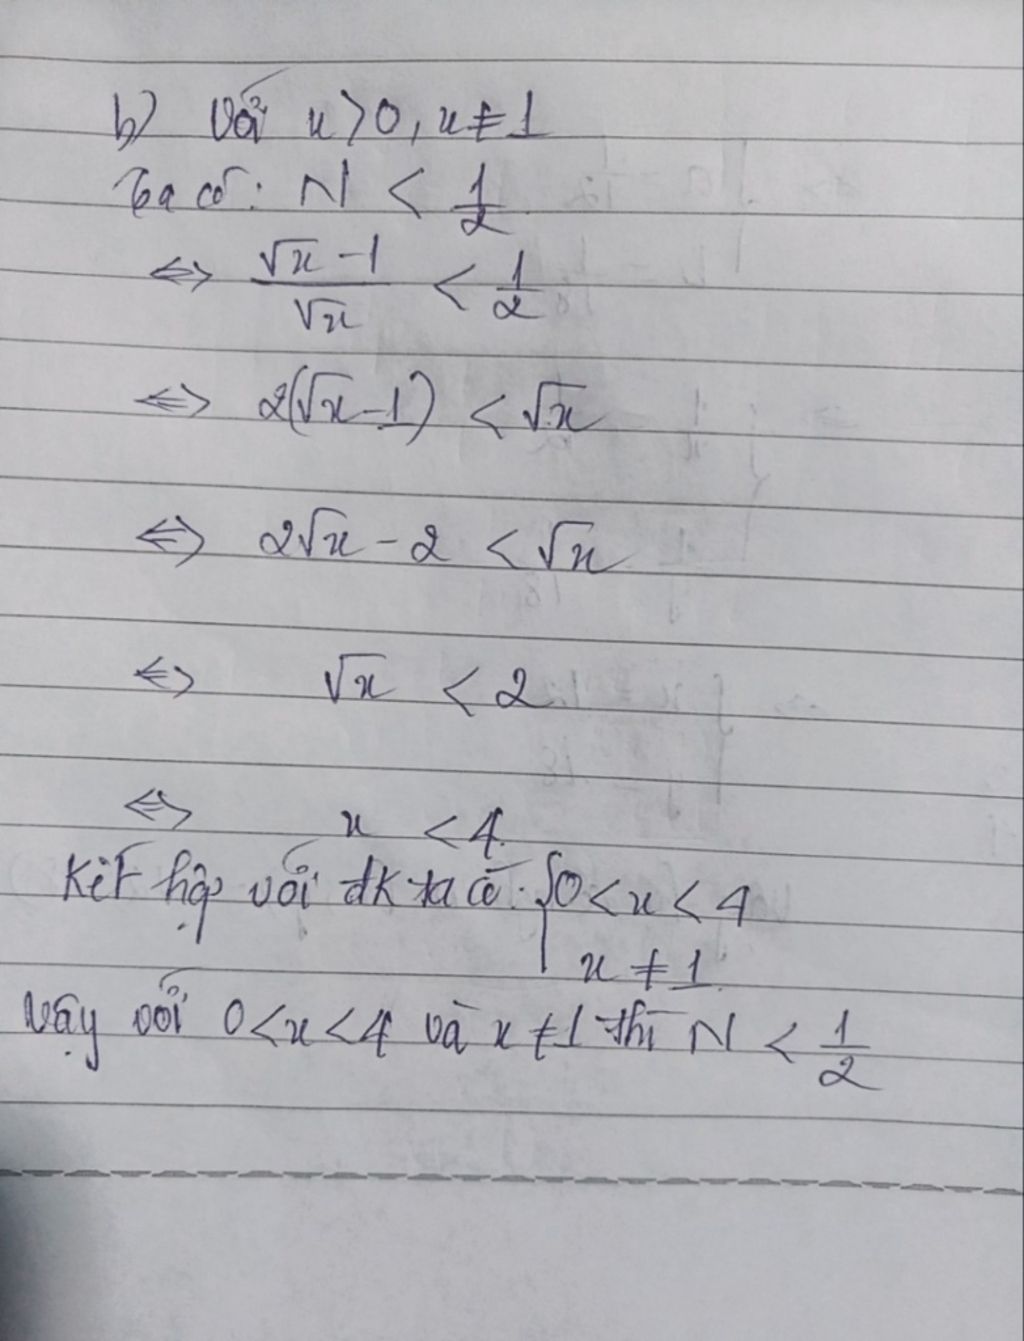 b) Với x > 0, x ≠ 1
Ta có: N < 1/2
⇔ (√x - 1)/√x < 1/2
⇔ 2(√x - 1) < √x
⇔ 2√x - 2 < √x
⇔ √x < 2
⇔ x < 4
Kết hợp với đk ta có: { 0 < x < 4
x ≠ 1
Vậy với 0 < x < 4 và x ≠ 1 thì N < 1/2